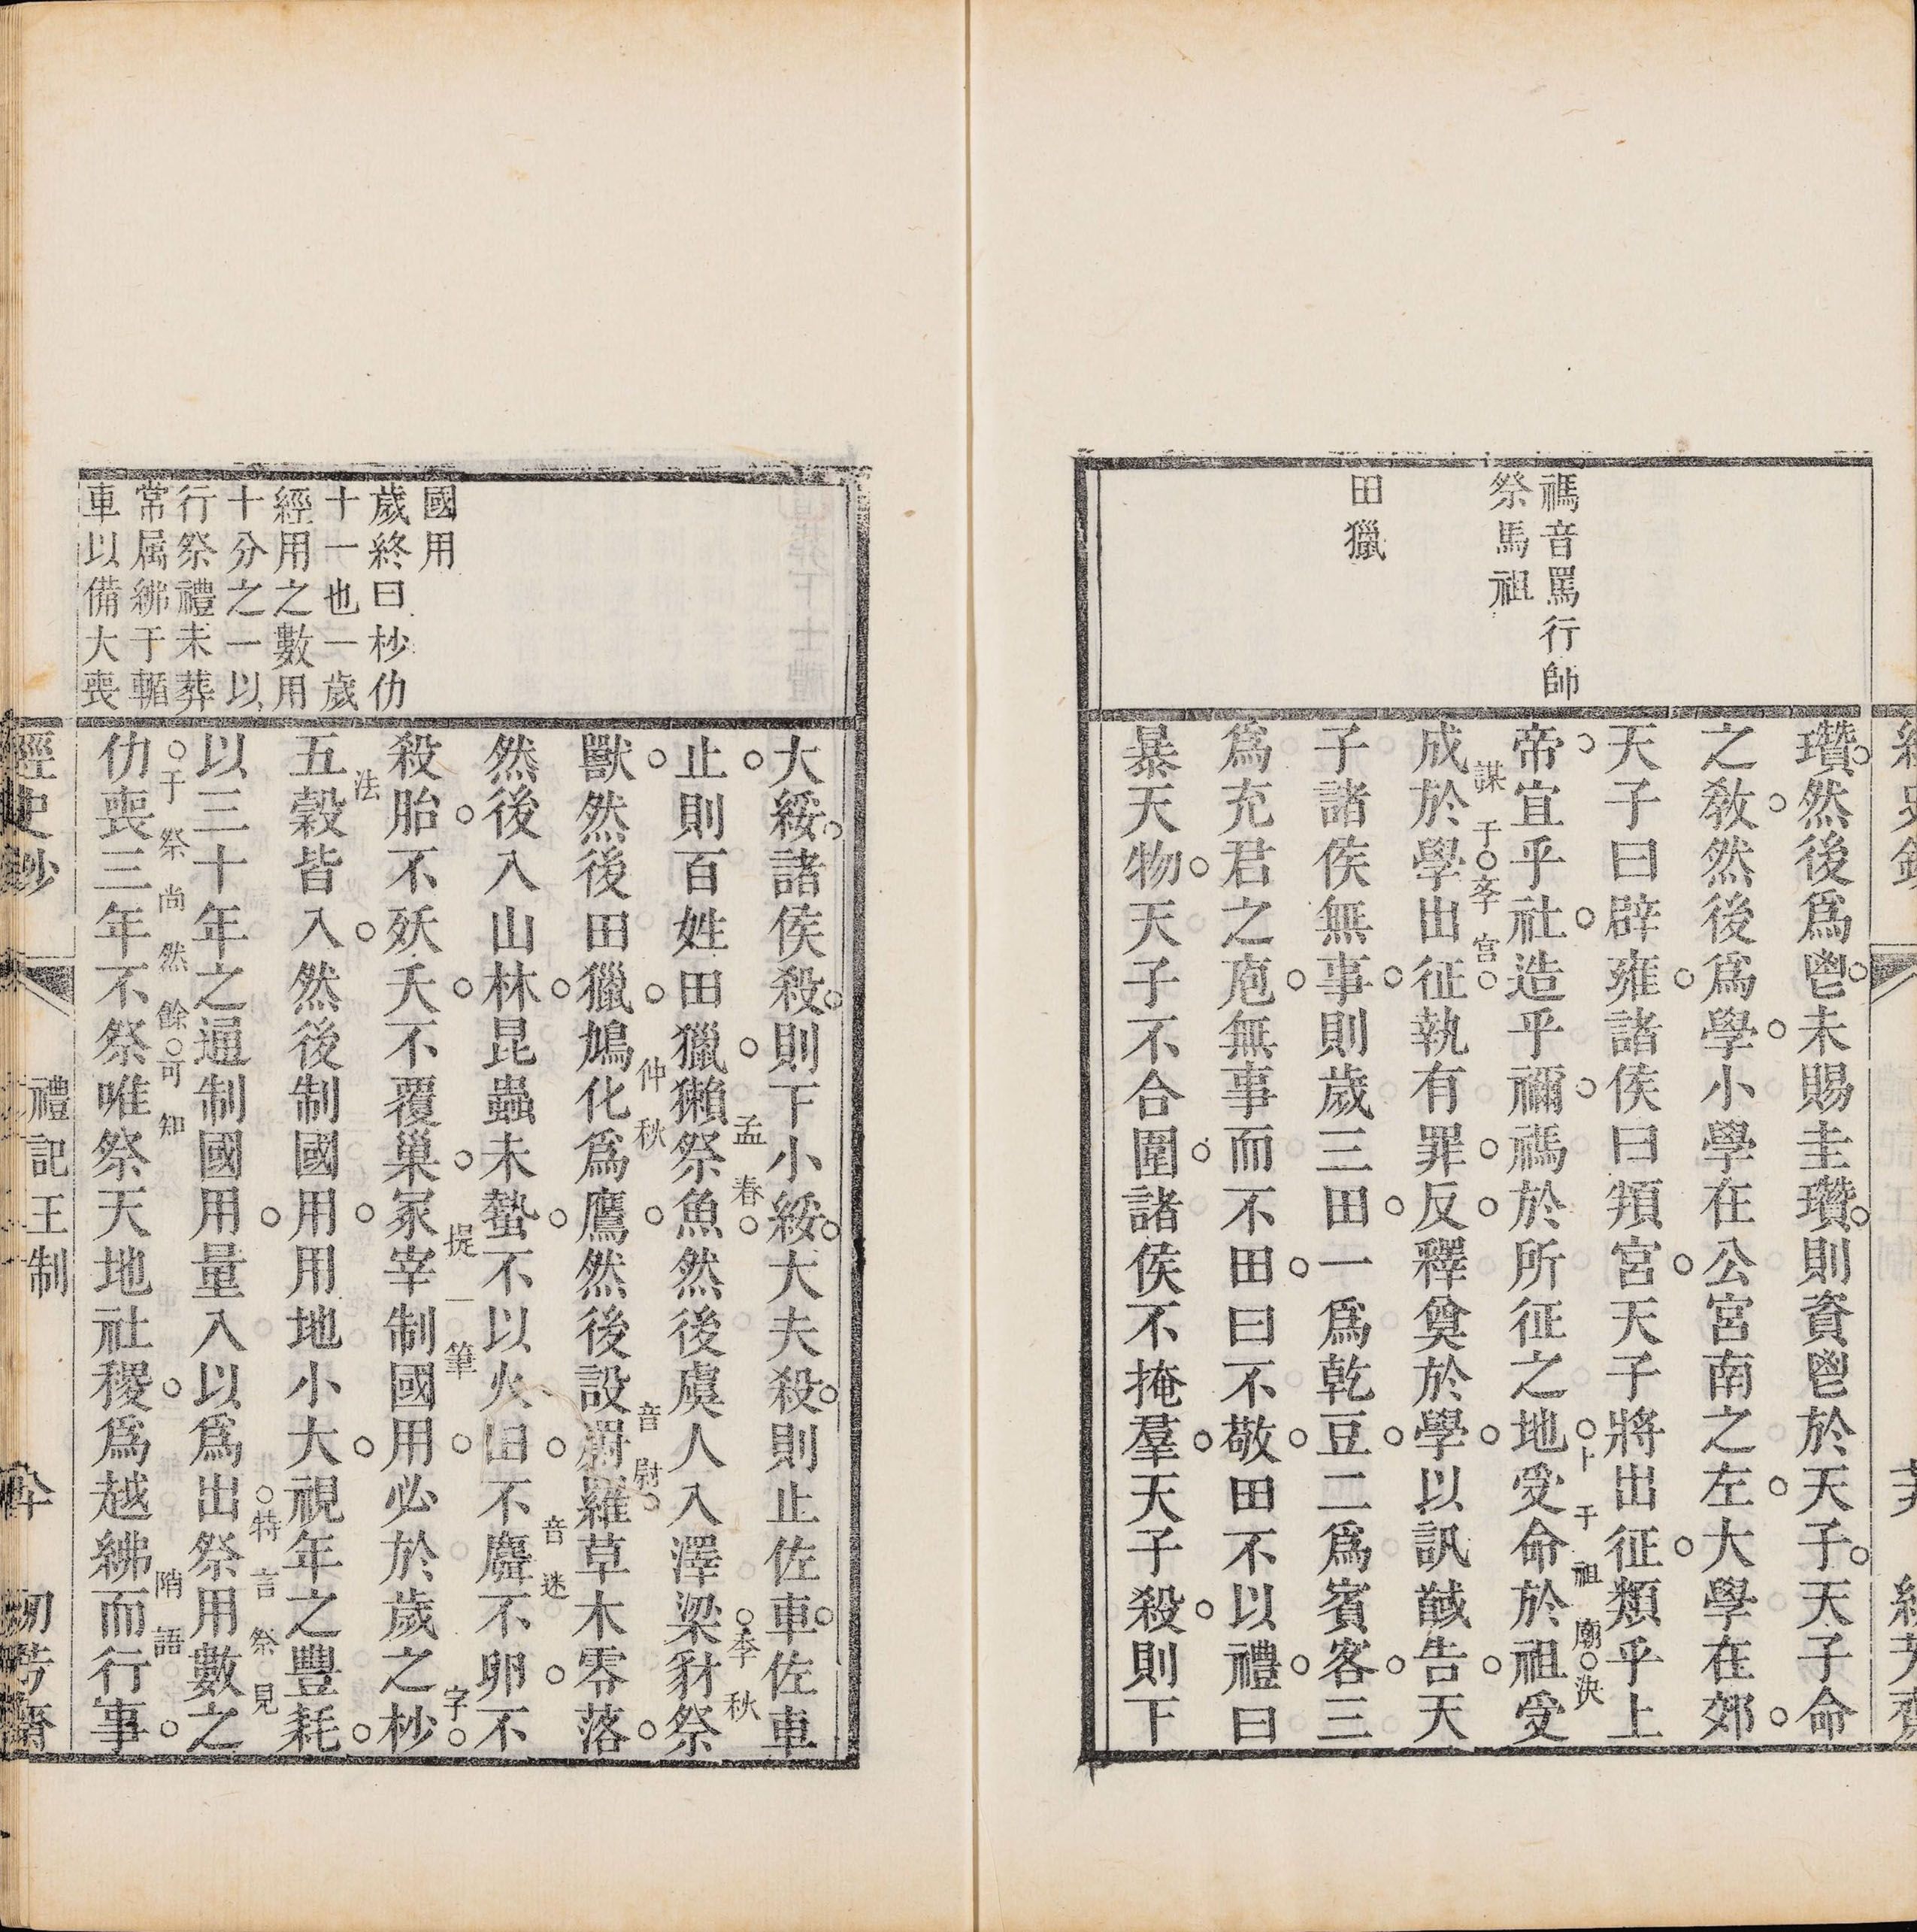 禡音罵行師
祭馬祖
田獵
瓚然後爲鬯未賜圭瓚則資鬯於天子天子命
之敎然後爲學小學在公宮南之左大學在郊
天子曰辟雍諸侯曰頖宮天子將出征類乎上
帝宜乎社造乎禰禡於所征之地受命於祖受
卜于祖廟決
成於學出征執有罪反釋奠於學以訊馘告天
謀于
宮
子諸侯無事則歲三田一爲乾豆二爲賓客三
爲充君之庖無事而不田曰不敬田不以禮曰
暴天物天子不合圍諸侯不掩羣天子殺則下
國用
歲終曰杪仂
十一也一歲
經用之數用
十分之一以
行祭禮未葬
常属紼于輴
車以備大喪
大綏諸侯殺則下小綏大夫殺則止佐車佐車
止則百姓田獵獺祭魚然後虞人入澤梁豺祭
孟春
季秋
獸然後田獵鳩化爲鷹然後設罻羅草木零落
仲秋
音尉
然後入山林昆蟲未蟄不以火田不麛不卵不
音迷
殺胎不殀夭不覆巢冢宰制國用必於歲之杪
提一筆
字
五穀皆入然後制國用用地小大視年之豐耗
法
以三十年之通制國用量入以爲出祭用數之
特言祭見
仂喪三年不祭唯祭天地社稷爲越紼而行事
于祭尚然餘可知
隋語
經史鈔
禮記王制